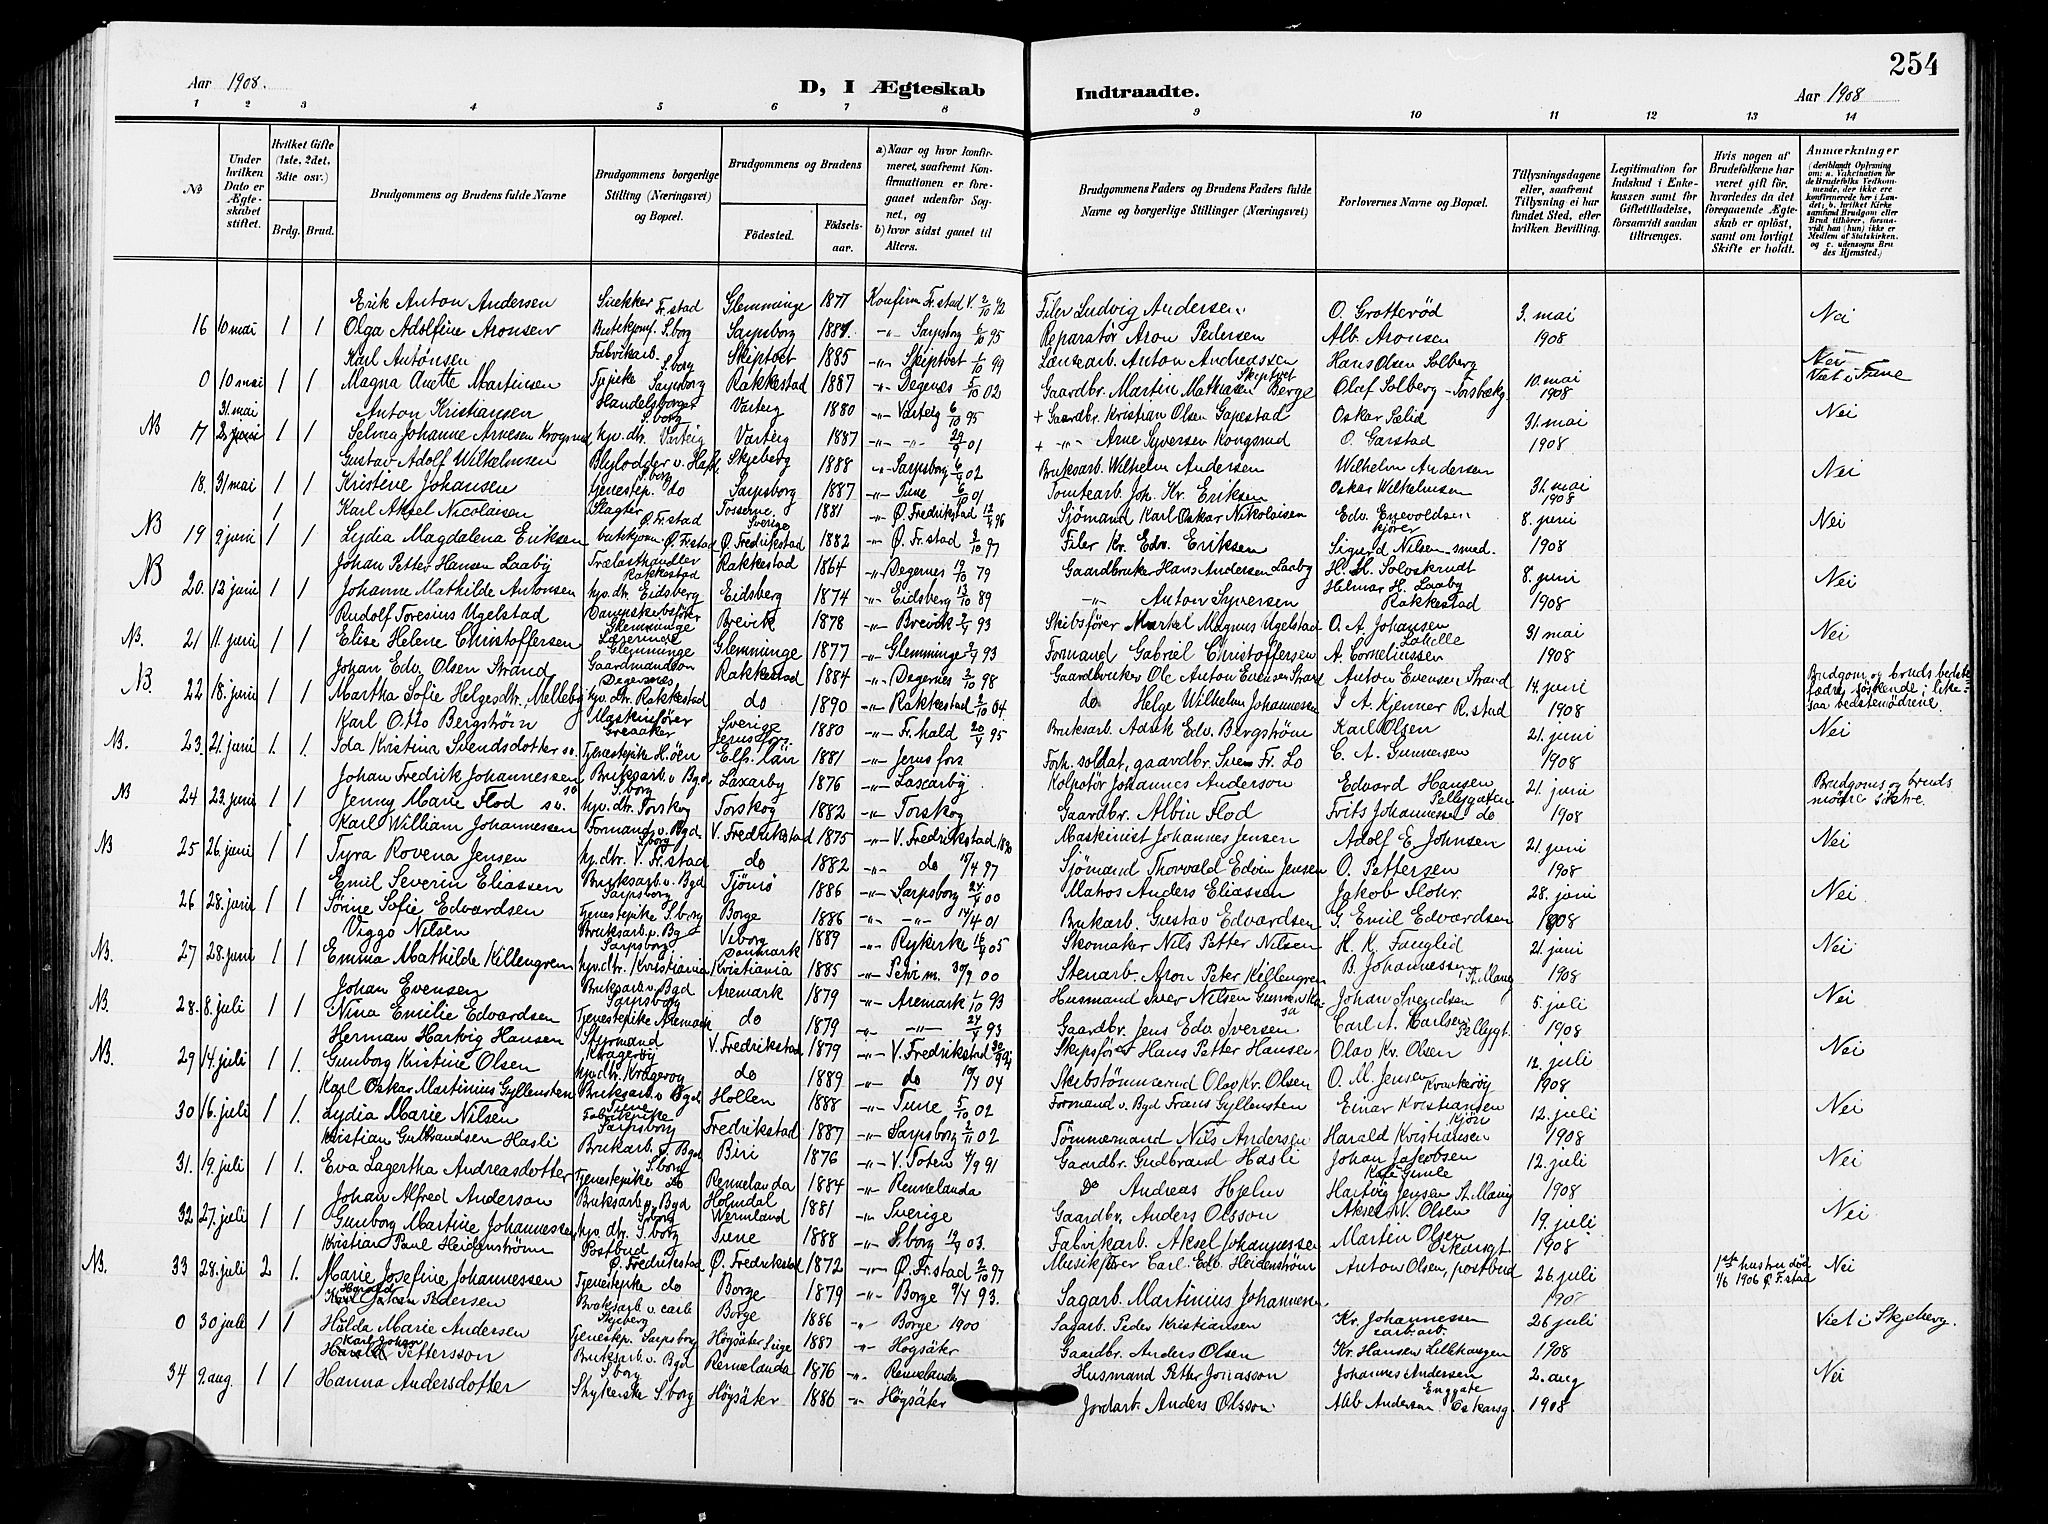 254
Aar 1908.
D, I Ægteskab Indtraadte.
Aar 1908
1 2 3 4 5 6 7 8 9 10 11 12 13 14
No
Under hvilken Dato er Ægteskabet stiftet.
Hvilket Gifte (1ste, 2det, 3die osv.)
Brdg. Brud.
Brudgommens og Brudens fulde Navne
Brudgommens borgerlige Stilling (Næringsvei) og Bopæl.
Brudgommens og Brudens
Födested. Födselsaar.
a) Naar og hvor konfirmeret, saafremt Konfirmationen er foregaaet udenfor Sognet, og
b) hvor sidst gaaet til Alters.
Brudgommens Faders og Brudens Faders fulde Navne og borgerlige Stillinger (Næringsvei)
Forlovernes Navne og Bopæl.
Tillysningsdagene eller, saafremt Tillysning ei har fundet Sted, efter hvilken Bevilling.
Legitimation for Indskud i Enkekassen samt for Giftetilladelse, forsaavidt saadan tiltrænges.
Hvis nogen af Brudefolkene har været gift för, hvorledes da det foregaaende Ægteskab er oplöst, samt om lovligt Skifte er holdt.
Anmærkninger
(deriblandt Oplysning om: a. Vakcination for de Brudefolks Vedkommende, der ikke ere konfirmerede her i Landet; b. hvilket Kirkesamfund Brudgom eller Brud tilhörer, forsaavidt han (hun) ikke er Medlem af Statskirken, og c. udensogns Brudes Hjemsted.)
Erik Anton Andersen Snekker Fr.stad Glemminge 1877 Konfirm Fr.stad V. 2/10 92 Filer Ludvig Andersen O. Grotterød 3. mai Nei
16 10 mai 1 1 Olga Adolfine Aronsen S.borg Sarpsborg -"- Sarpsborg 6/10 95 Reparatør Aron Pedersen Alb. Aronsen 1908
Karl Antonsen Fabrikarb. S.borg Skiptvet 1885 -"- Skiptvet 1/10 99 Anton Andreassen Skiptvet Hans Olsen Solberg 10. mai
0 10 mai 1 1 Magna Anette Martinsen Sarpsborg Rakkestad 1887 -"- Degenæs 5/10 02 Gaardbr. Martin Mathisen Berge Olaf Solberg - Torsbækg 1908 Viet i Tune
31. mai Anton Kristiansen Handelsborger S.borg Varteig 1880 -"- Varteig 6/10 95 + Gaardbr. Kristian Olsen Gapestad Oskar Sælid 31. mai Nei
NB 17 1 1 Selma Johanne Arnesen hjv. dtr. Varteig Varteig 1887 -"- -"- 29/9 01 + -"- Arne Syversen Kongsrud O. Garstad 1908
Gustav Adolf Wilhelmsen S.borg Skjeberg 1888 -"- Sarpsborg 02 Bruksarb. Wilhelm Andersen Wilhelm Andersen Nei
18. 31 mai 1 1 Kristine Johansen Tjenestep. do Sarpsborg 1887 -"- Tune 6/10 01 Tomtearb. Joh. Kr. Eriksen Oskar Wilhelmsen 31. mai 1908
Karl Aksel Nicolaisen Slagter Ø. Fr.stad Sverige 1881 -"- Ø. Fredrikstad 12/4 96 Sjömand Karl Oskar Nikolaisen Edv. Enevoldsen kjører 8. juni Nei
NB 19 9 juni 1 1 Lydia Magdalena Eriksen Ø. Fr.stad Ø. Fredrikstad 1882 -"- Ø. Fr.stad 2/10 97 Filer Kr. Edv. Eriksen Sigurd Nilsen smed. 1908
Johan Petter Hansen Laaby Trælasthandler Rakkestad Rakkestad 1864 -"- Degernes 19/10 79 Gaardbruker Hans Andersen Laaby H. H. 8. juni Nei
NB 20. 12 juni 1 1 Johanne Mathilde Antonsen hjv. dtr. Eidsberg Eidsberg 1874 -"- Eidsberg 13/10 89 -"- Anton Syversen Helmar H. Laaby Rakkestad 1908
Rudolf Toresius Ugelstad Glemminge Brevik 1878 -"- Brevik 2/4 93 Skibsfører Markel Magnus Ugelstad O. A. Johansen 31 mai Nei
NB. 21 11. juni 1 1 Elise Helene Christoffersen Lærerinde Glemminge Glemminge 1877 -"- Glemminge 93 Formand Gabriel Christoffersen A. Corneliussen 1908
Johan Edv. Olsen Strand Gaardmandssøn Degernæs Rakkestad 1884 -"- Degernes 2/10 98 Gaardbruker Ole Anton Evensen Strand Anton Evensen Strand 14. juni Budgom og bruds bedstefædre söskende; likesaa bedstemödrene.
NB. 22 18. juni 1 1 Martha Sofie Helgesdtr. Melleby hjv. dtr. Rakkestad do 1890 -"- Rakkestad 2/10 04. do Helge Wilhelm Johannessen I. A. Kjennar R.stad 1908
Karl Otto Bergström Maskinfører Greaaker Sverige 1880 -"- Fr.hald 20/4 95 Bruksarb. Edv. Bergström Karl Olsen 21. juni Nei
NB. 23. 21. juni 1. 1. Ida Kristina Svendsdotter Tjenestepike Elfs. län 1881 -"- Jerns fors Forh. soldat, gaardbr. Sven Fr. Lo C. A. Gunnersen 1908
Johan Fredrik Johannessen Bruksarb. v Bgd S.borg Laxarby 1876 -"- Laxarby Kolpotør Johannes Anderson Edvard Hansen Pellygaten 21. juni Brudgoms og bruds mödre söstre.
NB 24 23. juni 1 1 Jenny Marie Flod hjv. dtr. Torskog Torskog 1882 -"- Torskog Gaardbr. Albin Flod Frits Johannessen do 1908
Karl William Johannessen Formand v. Bgd S.borg V. Fredrikstad 1875 -"- V. Fredrikstad 1890 Maskinist Johannes Jensen Adolf E. Johnsen 21. juni Nei
NB 25 26. juni 1 1 Tyra Rovena Jensen hjv. dtr. V. Fr.stad do 1882 -"- do 4 97 Sjömand Thorvald Edvin Jensen O. Pettersen 1908
Emil Severin Eliassen Bruksarb. v Bgd Sarpsborg Tjömö 1886 -"- Sarpsborg 24/4 00 Matros Anders Eliassen Jakob Flohr. 28. juni Nei
26 28. juni 1 1 Sørine Sofie Edvardsen Tjenestepike S.borg Borge 1886 -"- -"- 14/4 01 Brukarb. Gustav Edvardsen G. Emil Edvardsen 1908
Viggo Nilsen Bruksarb. v. Bg Sarpsborg Viborg Danmark 1889 -"- Rykirke 16/4 05 Skomaker Nils Petter Nilsen H. K. Fanglid 21. juni Nei
NB. 27 28. juni 1 1 Emma Mathilde Killengreen hjv. dtr. Kristiania Kristiania 1885 -"- Petri m. 30/9 00 Stenarb. Aron Peter Killengren B. Johannessen St. Marig 1908
Johan Evensen Bruksarb v Bgd Sarpsborg Aremark 1879 -"- Aremark 1/10 93 Husmand Iver Nilsen Johan Svendsen 5. juli Nei
NB. 28. 8. juli 1 1 Nina Emilie Edvardsen Tjenestepike Aremark do 1879 -"- -"- 24/9 93 Gaardbr. Jens Edv. Iversen Carl A. Karlsen Pellygt. 1908
Herman Hartvig Hansen Styrmand V. Fredrikstad 1879 -"- V. Fredrikstad Skipsfører Hans Petter Hansen Olav Kr. Olsen 12. juli Nei
NB. 29 14. juli 1 1. Gunborg Kristine Olsen hjv. dtr. do 1889 -"- do 04 Skibstömmermd Olav Kr. Olsen O. M. Jensen 1908
Karl Oskar Martinius Gyllensten Bruksarb. v Bgd Tune Hollen 1888 -"- Tune 5/10 02 Formand v. Bgd Frans Gyllensten Einar Kristiansen 12. juli Nei
30 16. juli 1 1. Lydia Marie Nilsen Sarpsborg Fredrikstad 1887 -"- Sarpsborg 2/11 02 Tömmermand Nils Andersen Harald Kristiansen 1908
Kristian Gulbrandsen Hasli Bruksarb. v. Bgd S.borg Biri 1876 -"- V. Toten 4/9 91 Gaardbr. Gudbrand Hasli Johan Jakobsen 12. juli Nei
31. 19. juli 1 1. Eva Lagertha Andreasdotter Tjenestepike do Rennelanda 1884 -"- Rennelanda Do Andreas Hjelm Hartvig Jensen St. Marig 1908
Johan Alfred Anderson Bruksarb v Bgd S.borg Holmdal Wermland 1881 -"- Sverige Gaardbr. Anders Olsson Aksel W. Olsen 19. juli Nei
32 27. juli 1 1 Gunborg Martine Johannessen hjv. dtr. S.borg Tune 1888 -"- S.borg 03. Fabrikarb. Aksel Johannessen Martin Olsen Oskarsgt. 1908
Kristian Paul Heidenström Postbud Ø. Fredrikstad Ø. Fredrikstad 1872 -"- Ø. Fr.stad 2/10 97 Musikfører Carl Edv. Heidenström Anton Olsen, postbud 26. juli 1ste hustru död 1/6 1906 Ø. F.stad Nei
NB. 33 28. juli 2 1. Marie Josefine Johannessen Tjenestepike do Borge 1879 -"- Borge 93. Sagarb. Martinius Johannesen 1908
Johan Pedersen Skjeberg Borge 1886 -"- Borge 1900 Sagarb. Peder Kristiansen Kr. Johannessen 26 juli Viet i Skjeberg.
0 30 juli 1 1 Hulda Marie Andersen Tjenestep. Sarpsborg Högsäter 1887 -"- Högsäter Gaardbr. Anders Olsen Kr. Hansen 1908
Karl Johan Pettersson Bruksarb. v. Bgd S.borg Rennelanda 1876 -"- Rennelanda Husmand Petter Jonasson Johannes Andersen Enggate 2. aug Nei
34 9. aug. 1 1 Hanna Andersdotter S.borg Högsäter 1886 -"- Högsäter Jordarb. Anders Olsson Alb Andersen Oskarsg. 1908